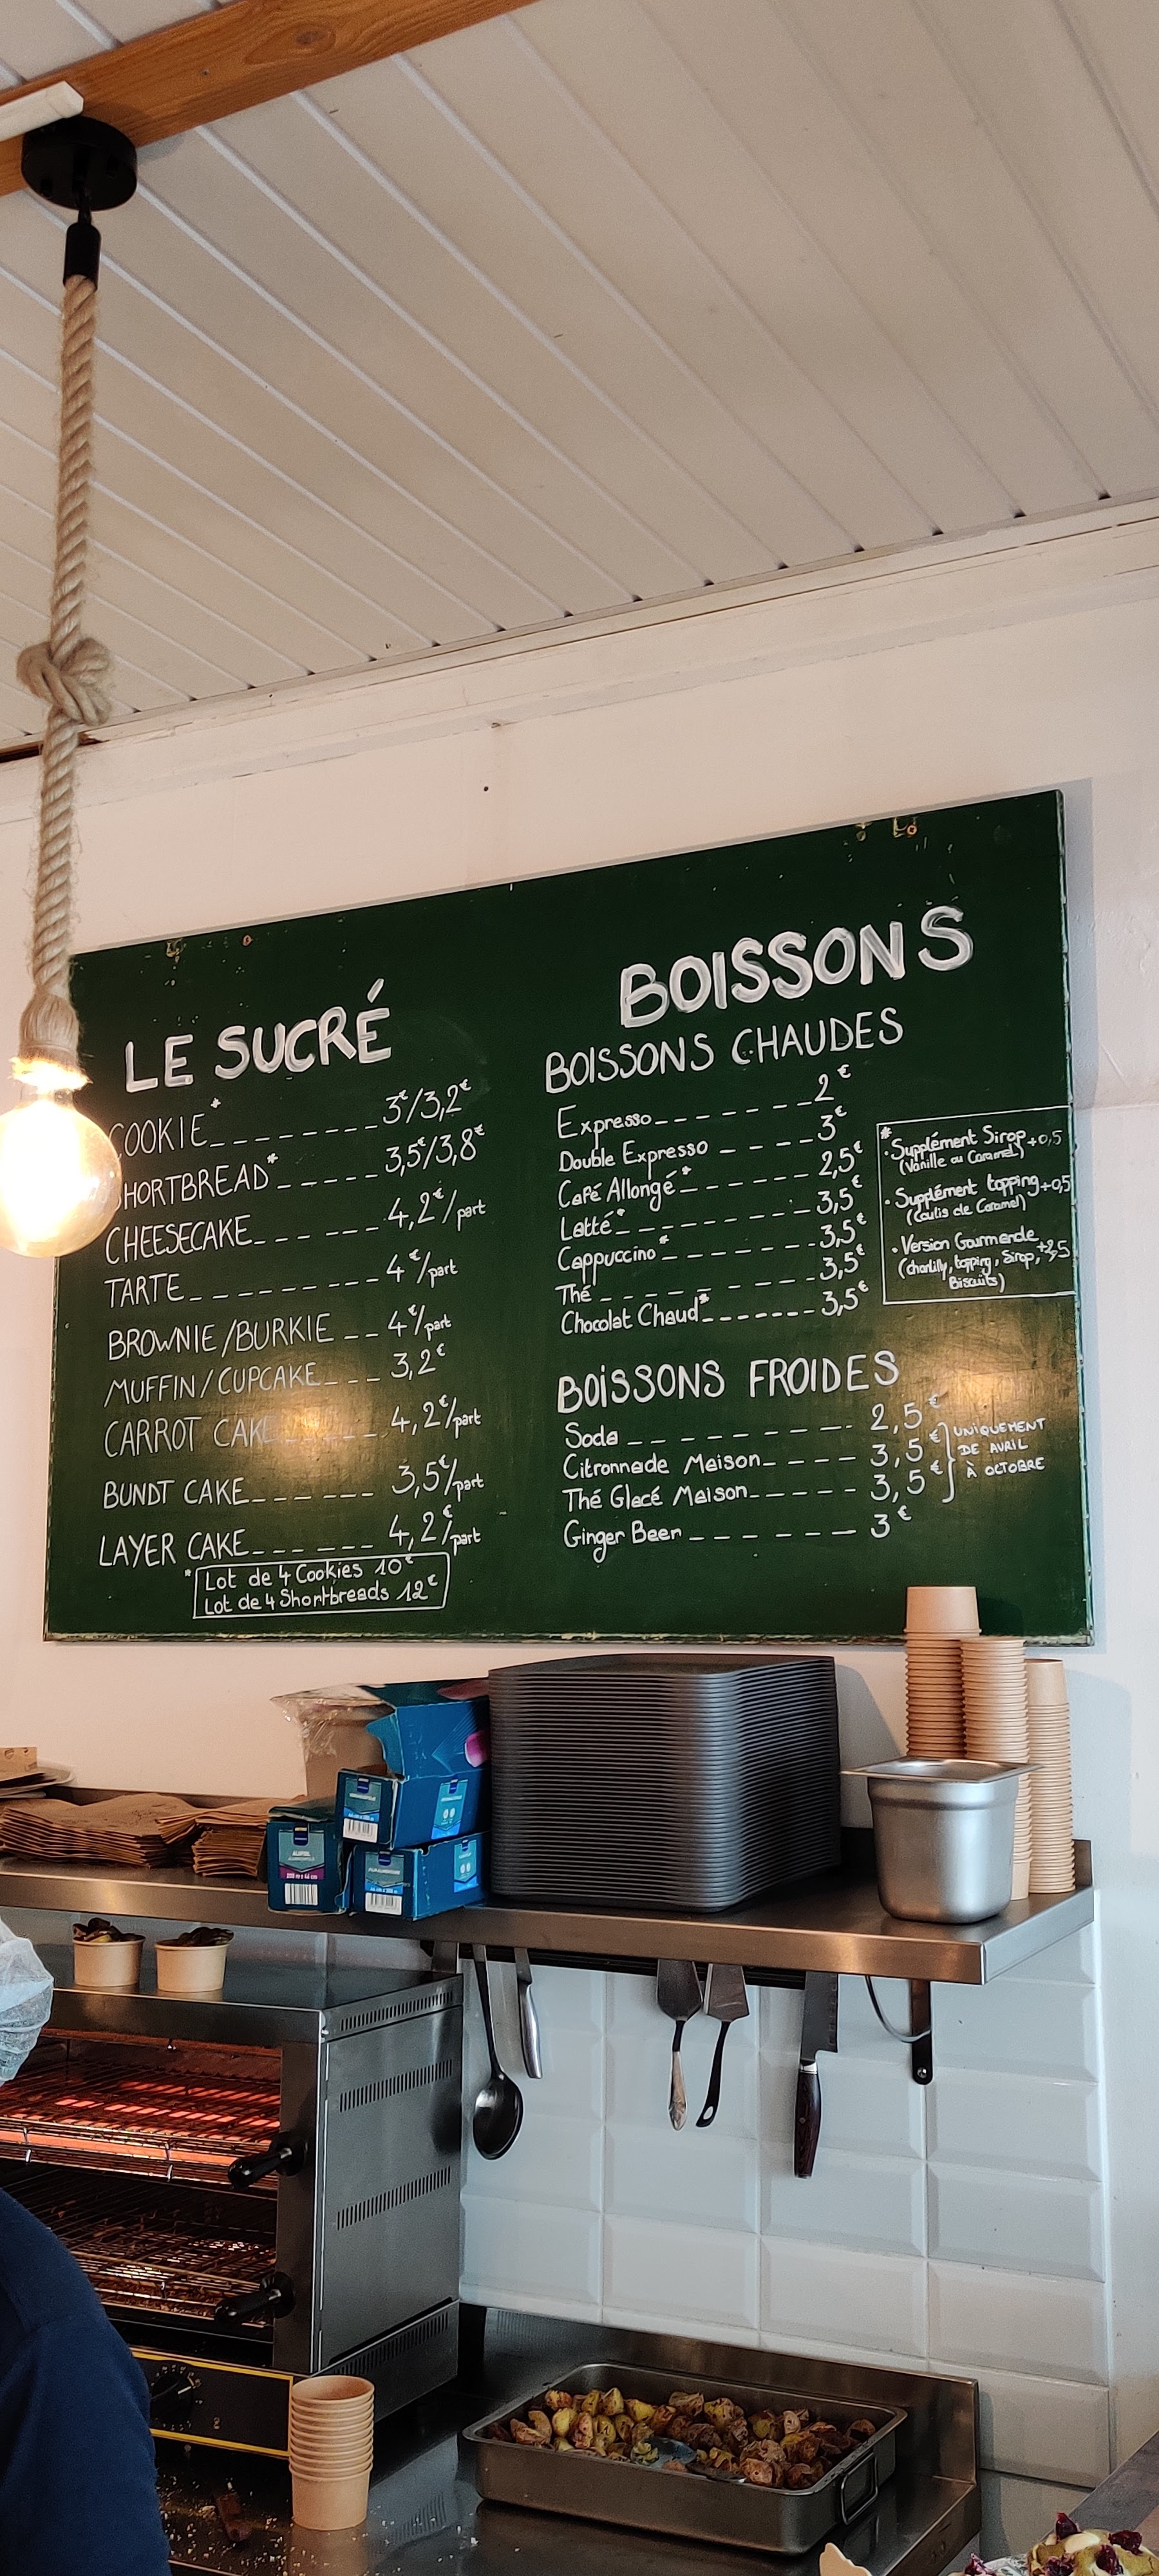 LE SUCRÉ
COOKIE* 3€/3,2€
SHORTBREAD* 3,5€/3,8€
CHEESECAKE 4,2€/part
TARTE 4€/part
BROWNIE/BURKIE 4€/part
MUFFIN/CUPCAKE 3,2€
CARROT CAKE 4,2€/part
BUNDT CAKE 3,5€/part
LAYER CAKE 4,2€/part
* Lot de 4 Cookies 10€
Lot de 4 Shortbreads 12€
BOISSONS
BOISSONS CHAUDES
Expresso 2€
Double Expresso 3€
Café Allongé* 2,5€
Latté* 3,5€
Cappuccino* 3,5€
Thé 3,5€
Chocolat Chaud* 3,5€
* Supplément Sirop +0,5
(Vanille ou Caramel)
• Supplément topping +0,5
(Coulis de Caramel)
• Version Gourmande
(chantilly, topping, Sirop,
Biscuits)
BOISSONS FROIDES
Soda 2,5€
Citronnade Maison 3,5€
Thé Glacé Maison 3,5€
UNIQUEMENT
DE AVRIL
À OCTOBRE
Ginger Beer 3€